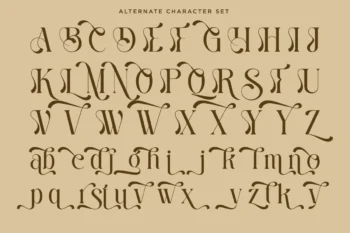 ALTERNATE CHARACTER SET
A B C D E F G H H I J
K L M N O P Q R S T U
V V W W X X Y Y Z
ab cd f g h i j k l m n o
p q r s t u v w x y z k y